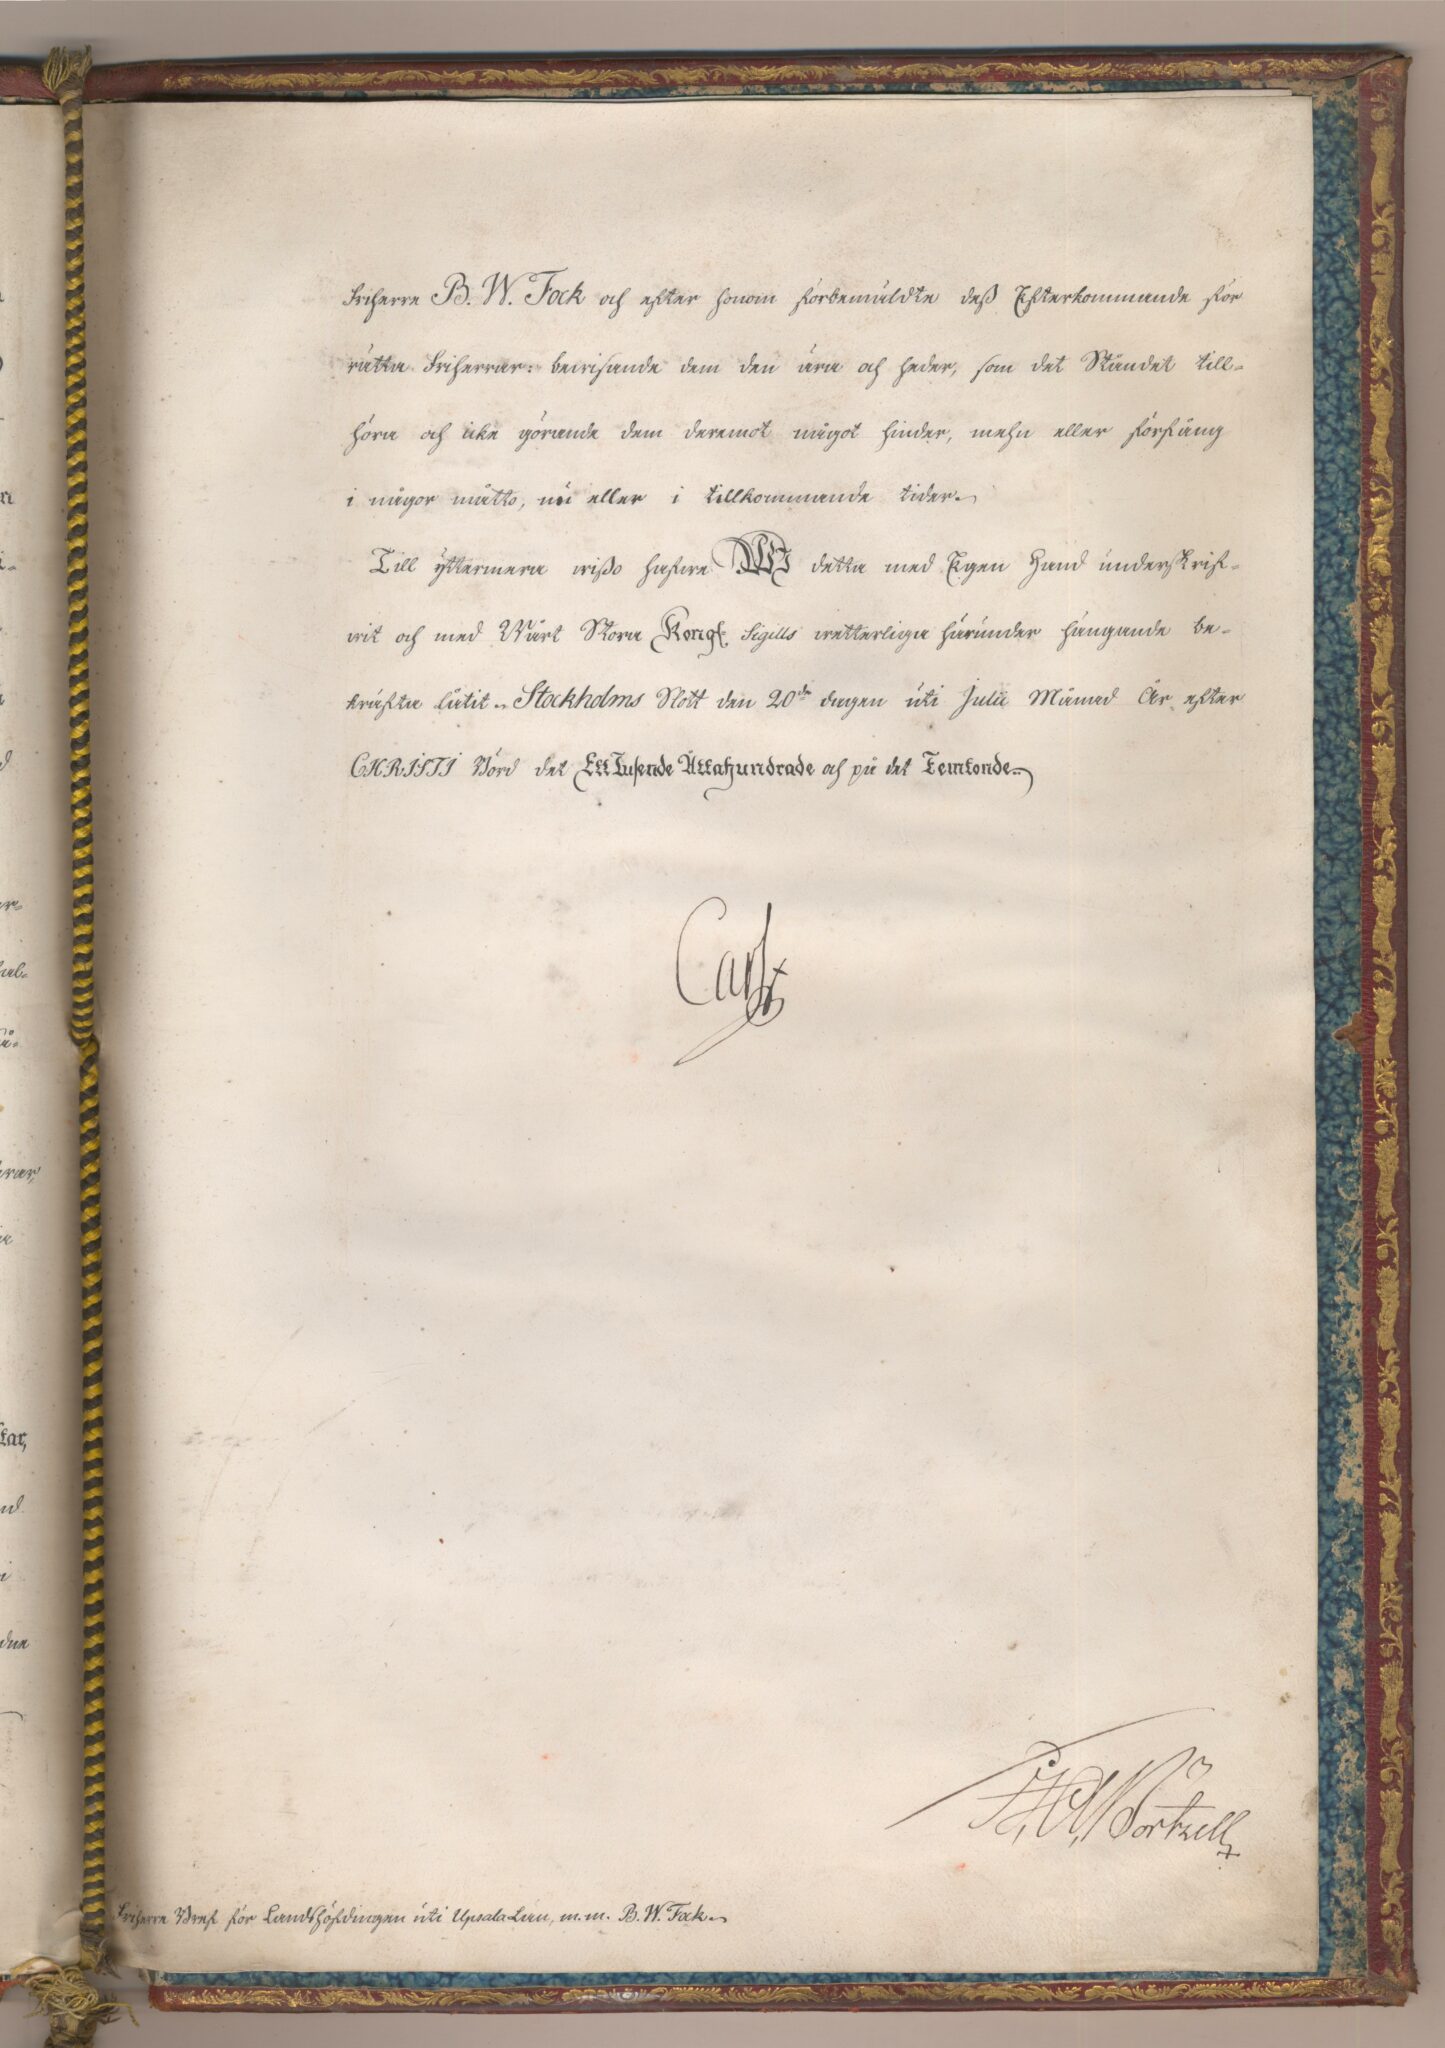 Friherre B. W. Fock och efter honom förbemäldte deß Efterkommande för
rätta Friherrar: bewisande dem den ära och heder, som det Ståndet till=
höra och icke görande dem deremot något hinder, mehn eller förfång
i någor måtto, nu eller i tillkommande tider.
Till yttermera wißo hafwe WI detta med Egen Hand underskrif=
wit och med Wårt Stora Kongl. Sigills wetterliga härunder hängande be=
kräfta låtit. Stockholms Slott den 20de dagen uti Julii Månad År efter
CHRISTI Börd det Ett Tusende Åttahundrade och på det Femtonde.
Carl
Wörtzell
Friherre Bref för Landshöfdingen uti Upsala Län, m.m. B. W. Fock.
rar,
tar,